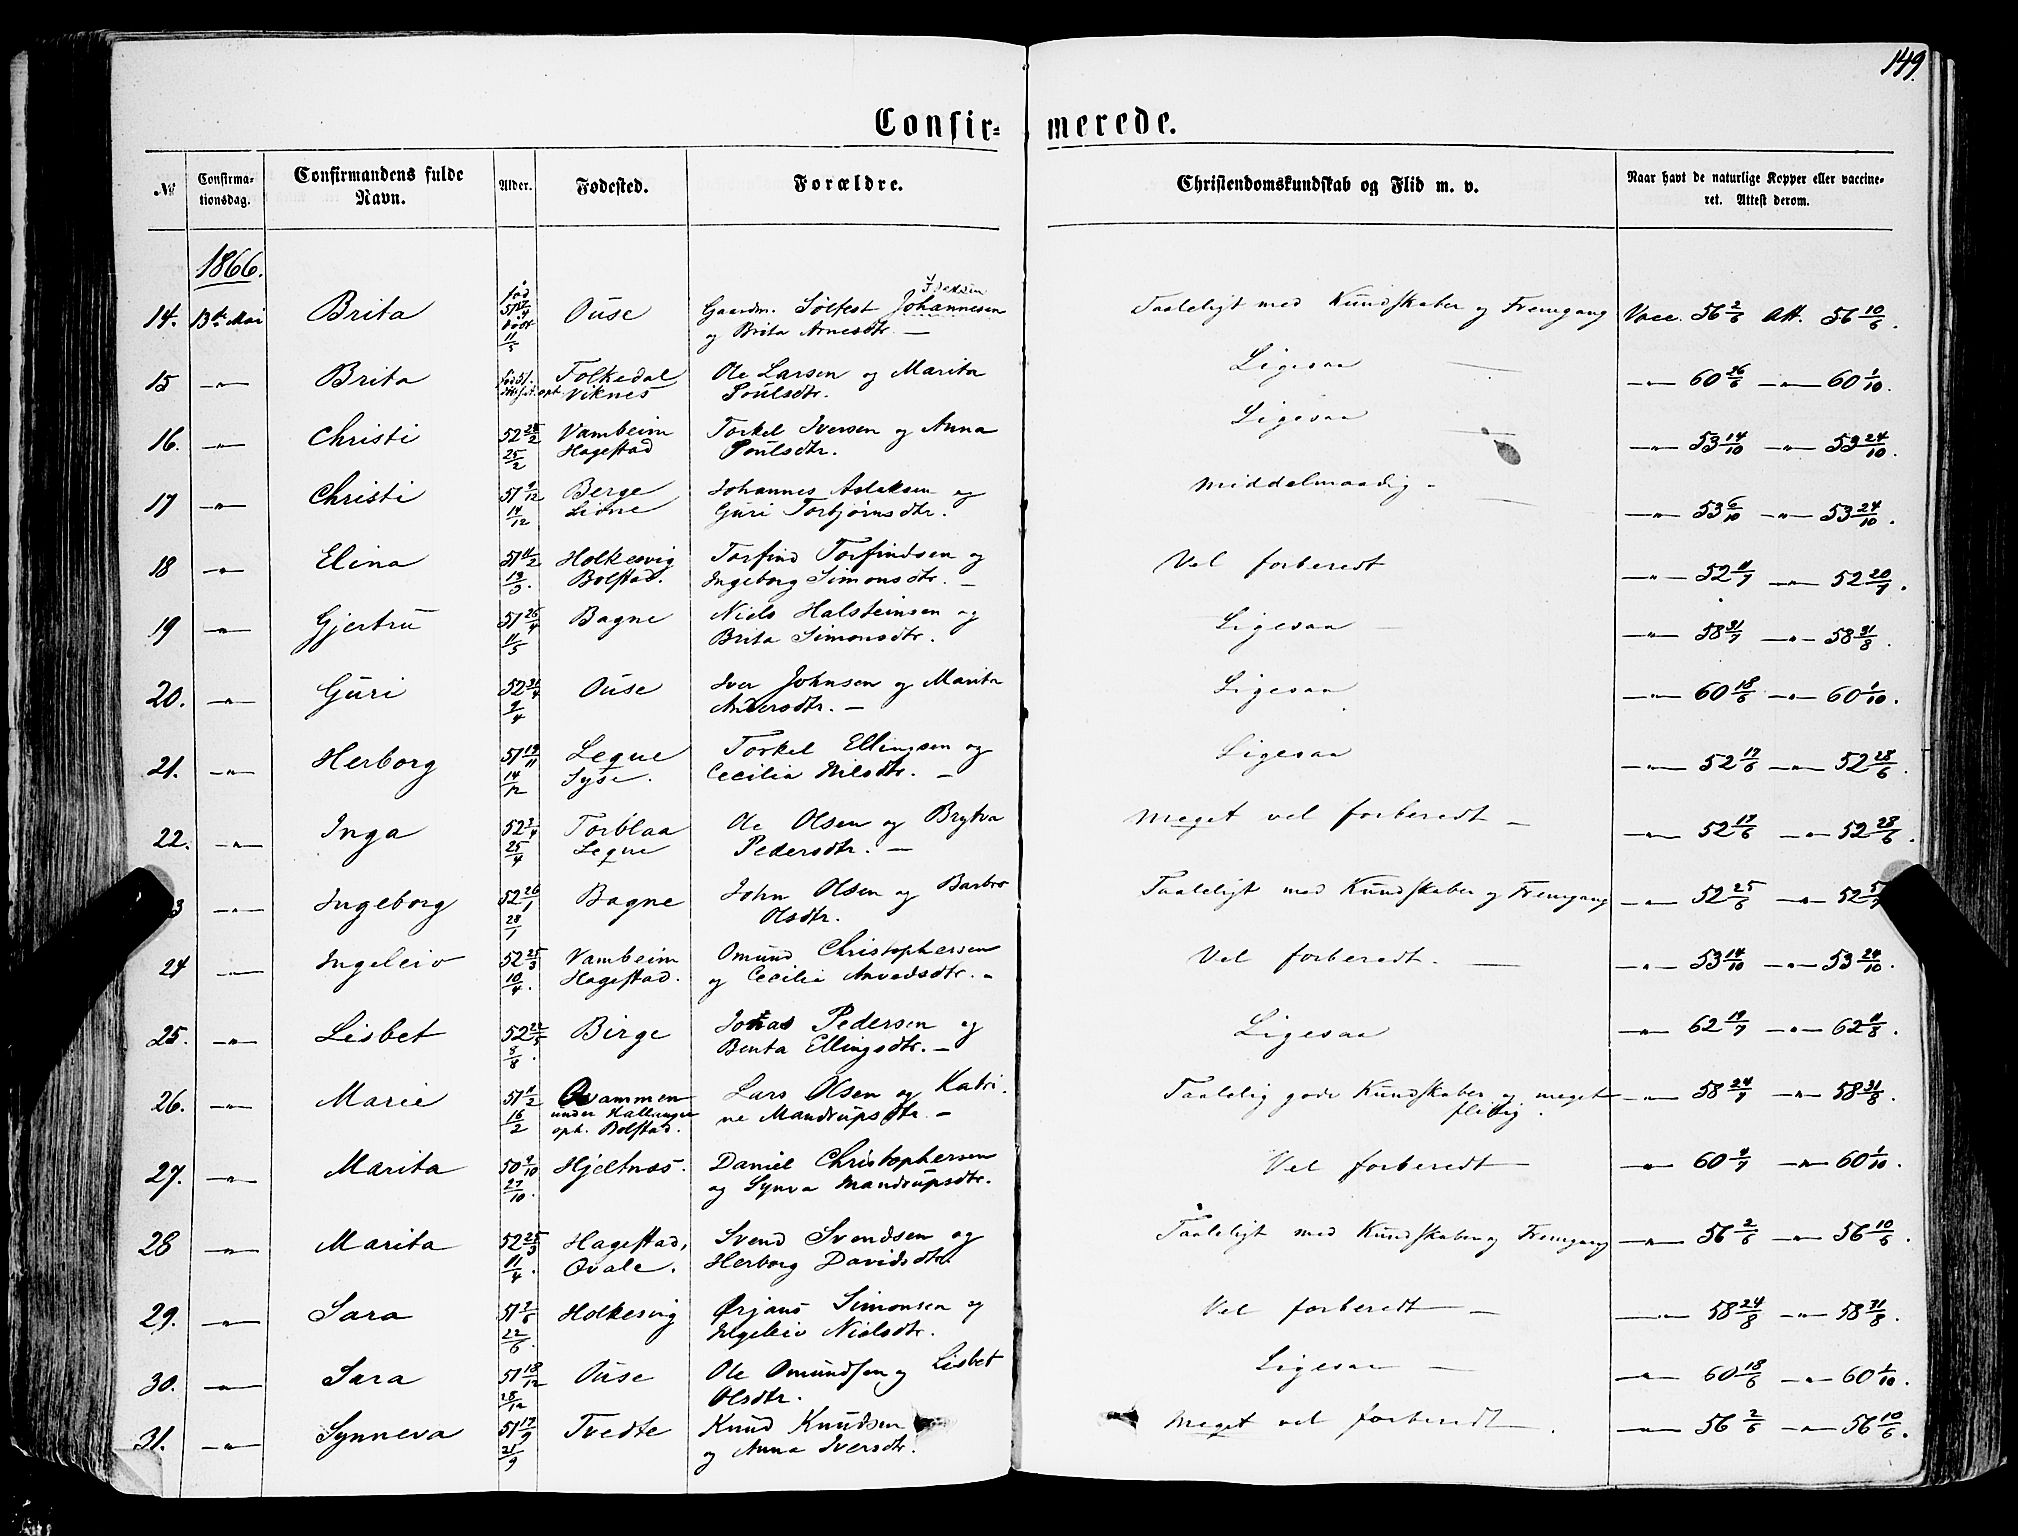 149.
Confir= merede.
No
Confirma=
tionsdag.
Confirmandens fulde
Navn.
Alder.
Fødested.
Forældre.
Christendomskundskab og Flid m. v.
Naar havt de naturlige Kopper eller vaccine=
ret. Attest derom.
1866.
14. 13de Mai Brita Ouse Gaardm. Sølfest Johannesen Taaleligt med Kundskaber og Fremgang Vacc. 56 2/6 Att. 56 10/6.
og Brita Arnesdtr. —
15 —"— Brita Folkedal Ole Larsen og Marita Ligesaa —"— 60 26/6 —"— 60 1/10.
oph. Viknes Poulsdtr.
16. —"— Christi 52 Vambeim Torkel Iversen og Anna Ligesaa —"— 53 14/10 —"— 53 24/10.
25/2 Hagestad Poulsdtr.
17 —"— Christi 51 9/12 Berge Johannes Aslaksen og Middelmaadig —"— 53 6/10 —"— 53 24/10.
14/12 Lione Guri Torbjørnsdtr.
18 —"— Elina 51 Holkesvig Torfind Torfindsen og Vel forberedt —"— 52 11/7 —"— 52 20/7.
Bolstad. Ingeborg Simonsdtr. —
19 —"— Gjertru 51 26/4 Bagne Niels Halsteinsen og Ligesaa —"— 58 31/7 —"— 58 31/8.
11/5 Brita Simonsdtr.
20. —"— Guri 52 Ouse Iver Johnsen og Marita Ligesaa —"— 60 18/6 —"— 60 1/10.
Andersdtr. —
21. —"— Herborg 51 19/11 Leque Torkel Ellingsen og Ligesaa —"— 52 17/6 —"— 52 28/6.
14/12 Syse. Cecilia Nilsdtr. —
22. —"— Inga 52 3/4 Torblaa Ole Olsen og Brytva Meget vel forberedt — —"— 52 17/6 —"— 52 28/6.
25/4 Leque Pedersdtr. —
3 —"— Ingeborg 52 26/1 Bagne John Olsen og Barbro Taaleligt med Kundskaber og Fremgang —"— 52 25/6 —"— 52
28/1 Olsdtr.
24 —"— Ingeleiv 52 25/3 Vambeim Omund Christophersen Vel forberedt. —"— 53 14/10 —"— 53 24/10.
10/4. Hagestad. og Cecilia Arvedsdtr. —
25. —"— Lisbet 52 Birge Jonas Pedersen og Ligesaa —"— 62 19/7 —"— 62 11/8
Benta Ellingsdtr. —
26. —"— Marie 51 Qvammen Lars Olsen og Katri= Taalelig gode Kundskaber og meget —"— 58 24/7 —"— 58 31/8.
16/2 under Hallanger ne Mandrupsdtr. — flittig.
oph. Bolstad.
27. —"— Marita 50 9/10 Hjeltnæs. Daniel Christophersen Vel forberedt —"— 60 —"— 60 1/10.
27/10. og Synva Mandrupsdtr.
28 —"— Marita 52 25/3 Hagestad, Svend Svendsen og Taaleligt med Kundskaber og Fremgang —"— 56 2/6 —"— 56 10/6.
11/4. Qvale. Herborg Davidsdtr.
29. —"— Sara 51 Holkesvig Ørjans Simonsen og Vel forberedt —"— 58 24/8 —"— 58 31/8.
22/6. Ingeleiv Nielsdtr.
30. —"— Sara 51 18/12 Ouse Ole Omundsen og Lisbet Ligesaa —"— 60 18/6 —"— 60 1/10.
28/12 Olsdtr.
31. —"— Synneva 51 17/9 Tvedte Knud Knudsen Meget vel forberedt —"— 56 2/6 —"— 56 10/6.
21/9 og Anna Iversdtr.